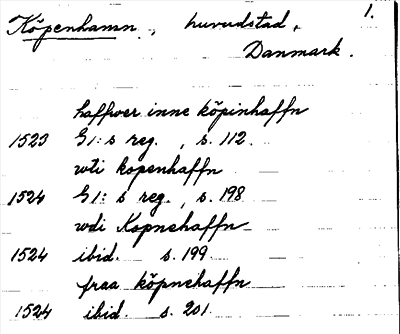 1.
Köpenhamn, huvudstad,
Danmark.
haffwer inne köpinhaffn
1523 G1:s reg., s. 112.
wti kopenhaffn
1524 G1:s reg., s. 198
wdi Kopnehaffn
1524 ibid. s. 199
fraa köpnehaffn
1524 ibid. s. 201.